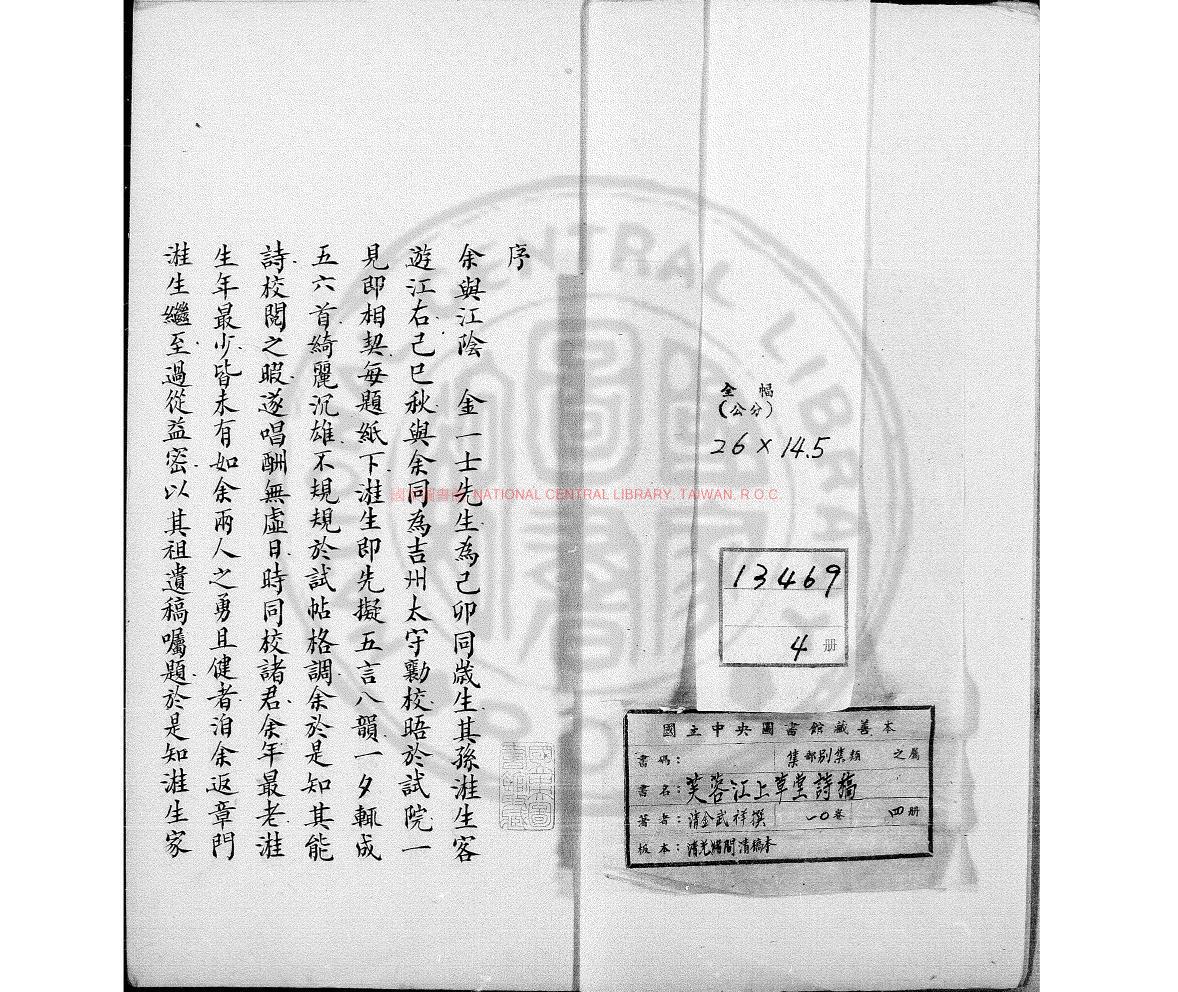 序
余與江陰　金一士先生為己卯同歲生其孫溎生客
遊江右己巳秋與余同為吉州太守勷校晤於試院一
見即相契每題紙下溎生即先擬五言八韻一夕輒成
五六首綺麗沉雄不規規於試帖格調余於是知其能
詩校閱之暇遂唱酬無虛日時同校諸君余年最老溎
生年最少皆未有如余兩人之勇且健者洎余返章門
溎生繼至過從益密以其祖遺稿囑題於是知溎生家
全幅
(公分)
26 × 14.5
13469
4 册
國立中央圖書館藏善本
書碼： 集部別集類 之屬
書名：芙蓉江上草堂詩稿
著者：清金武祥撰 一〇卷 四册
板本：清光緒間清稿本
國家圖書館, NATIONAL CENTRAL LIBRARY, TAIWAN, R.O.C.
NATIONAL CENTRAL LIBRARY